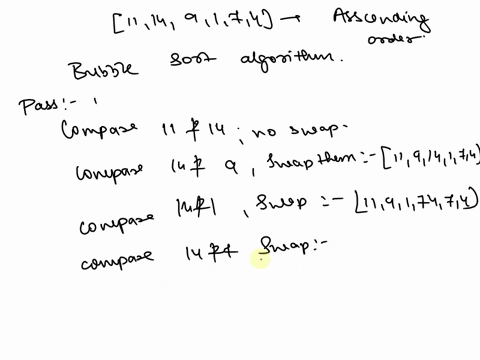 [11, 14, 9, 1, 7, 4] → Asscending order.
Bubble sort algorithm.
Pass:- 1
Compare 11 & 14 ; no swap.
compare 14 & 9, Swap them:- [11, 9, 14, 1, 7, 4]
compare 14 & 1, Swap :- [11, 9, 1, 74, 7, 4]
compare 14 & Swap:-